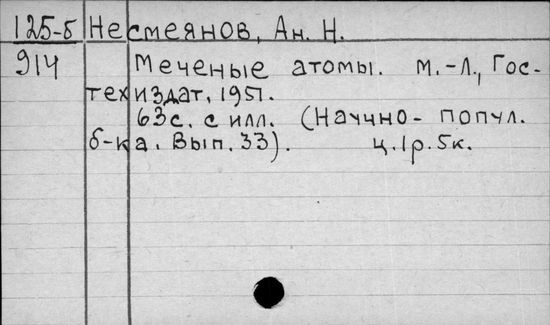 125-5 Несмеянов, Ан. Н.
914 Меченые атомы. М.-Л., Гос-
техиздат, 1951.
63с. с илл. (Научно- попул.
б-ка. Вып. 33). ц. 1р. 5к.